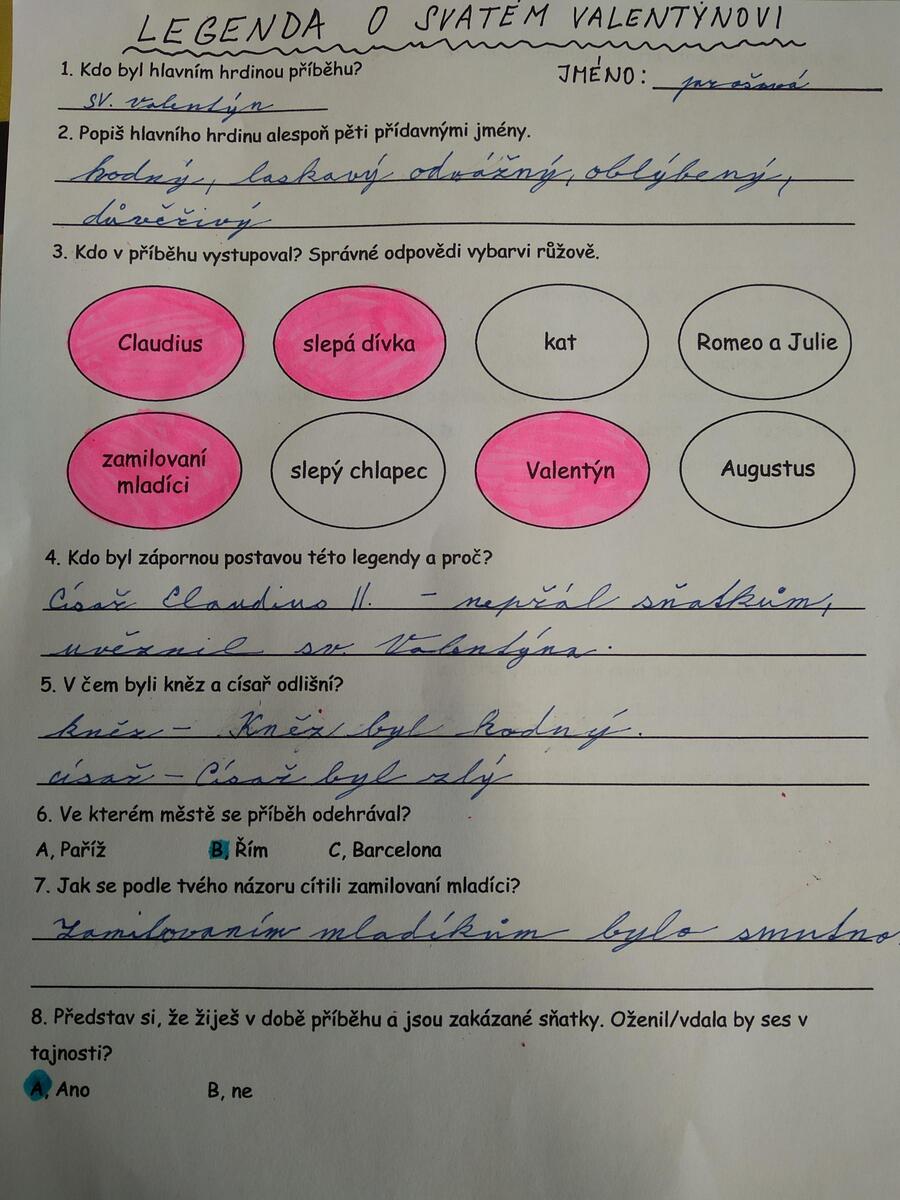 LEGENDA O SVATÉM VALENTÝNOVI
1. Kdo byl hlavním hrdinou příběhu?
JMÉNO: jarošová
sv. Valentýn
2. Popiš hlavního hrdinu alespoň pěti přídavnými jmény.
hodný, laskavý odvážný, oblýbený,
důvěřivý
3. Kdo v příběhu vystupoval? Správné odpovědi vybarvi růžově.
Claudius slepá dívka kat Romeo a Julie
zamilovaní
mladíci slepý chlapec Valentýn Augustus
4. Kdo byl zápornou postavou této legendy a proč?
Císař Claudius II. - nepřál sňatkům,
uvěznil sv. Valentýna.
5. V čem byli kněz a císař odlišní?
kněz - Kněz byl hodný.
císař - Císař byl zlý
6. Ve kterém městě se příběh odehrával?
A, Paříž B, Řím C, Barcelona
7. Jak se podle tvého názoru cítili zamilovaní mladíci?
Zamilovaním mladíkům bylo smutno
8. Představ si, že žiješ v době příběhu a jsou zakázané sňatky. Oženil/vdala by ses v
tajnosti?
A, Ano B, ne